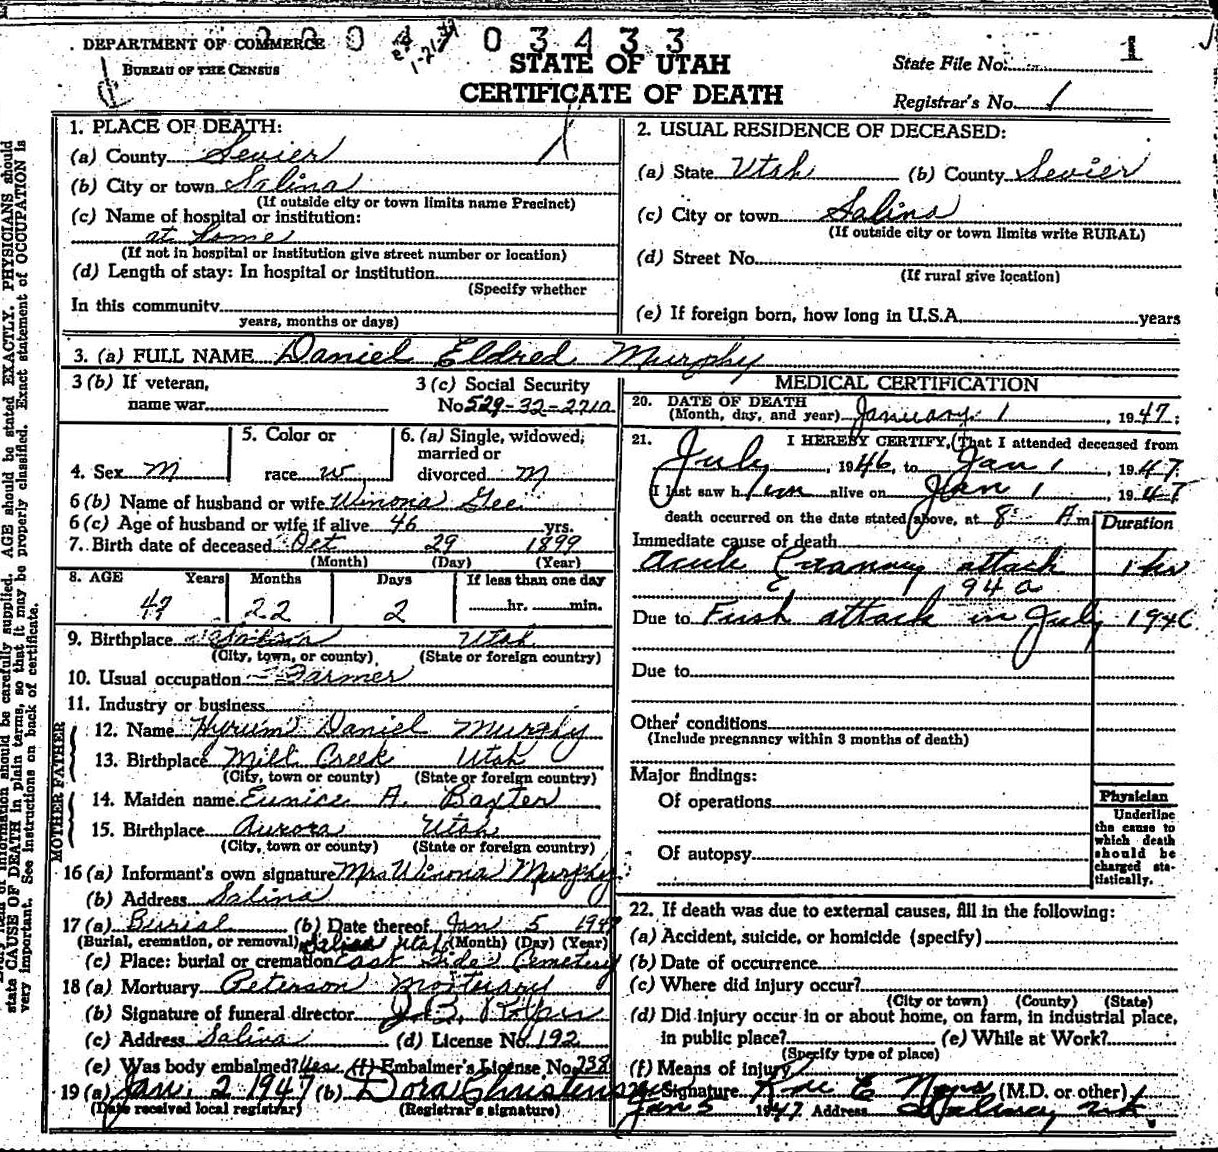 DEPARTMENT OF COMMERCE
BUREAU OF THE CENSUS
0 3 4 3 3
STATE OF UTAH
CERTIFICATE OF DEATH
State File No. 1
Registrar's No. 1
1. PLACE OF DEATH:
(a) County Sevier
(b) City or town Salina
(If outside city or town limits name Precinct)
(c) Name of hospital or institution:
at home
(If not in hospital or institution give street number or location)
(d) Length of stay: In hospital or institution
(Specify whether
In this community
years, months or days)
2. USUAL RESIDENCE OF DECEASED:
(a) State Utah (b) County Sevier
(c) City or town Salina
(If outside city or town limits write RURAL)
(d) Street No.
(If rural give location)
(e) If foreign born, how long in U.S.A. years
3. (a) FULL NAME Daniel Eldred Murphy
3 (b) If veteran,
name war
3 (c) Social Security
No. 529-32-2210
4. Sex M
5. Color or
race w
6. (a) Single, widowed,
married or
divorced M
6 (b) Name of husband or wife Winona Gee
6 (c) Age of husband or wife if alive 46 yrs.
7. Birth date of deceased Oct 29 1899
(Month) (Day) (Year)
8. AGE Years Months Days If less than one day
47 22 2 hr. min.
9. Birthplace Salina Utah
(City, town, or county) (State or foreign country)
10. Usual occupation Farmer
11. Industry or business
FATHER
12. Name Hyrum Daniel Murphy
13. Birthplace Mill Creek Utah
(City, town or county) (State or foreign country)
MOTHER
14. Maiden name Eunice A. Baxter
15. Birthplace Aurora Utah
(City, town or county) (State or foreign country)
16 (a) Informant's own signature Mrs Winona Murphy
(b) Address Salina
17 (a) Burial (b) Date thereof Jan 5 1947
(Burial, cremation, or removal) Salina Utah (Month) (Day) (Year)
(c) Place: burial or cremation East Side Cemetery
18 (a) Mortuary Peterson Mortuary
(b) Signature of funeral director J.B.
(c) Address Salina (d) License No. 192
(e) Was body embalmed? Yes (f) Embalmer's License No. 238
19 (a) Jan. 2 1947 (b) Dora Christensen
(Date received local registrar) (Registrar's signature)
MEDICAL CERTIFICATION
20. DATE OF DEATH
(Month, day, and year) January 1 1947;
21. I HEREBY CERTIFY, (That I attended deceased from
July, 1946, to Jan 1, 1947
I last saw him alive on Jan 1, 1947
death occurred on the date stated above, at 8 A m
Duration
Immediate cause of death
Acute Coronary attack 1 hr
94 a
Due to First attack in July 1946
Due to
Other conditions
(Include pregnancy within 3 months of death)
Major findings:
Of operations
Of autopsy
Physician
Underline
the cause to
which death
should be
charged sta-
tistically.
22. If death was due to external causes, fill in the following:
(a) Accident, suicide, or homicide (specify)
(b) Date of occurrence
(c) Where did injury occur?
(City or town) (County) (State)
(d) Did injury occur in or about home, on farm, in industrial place,
in public place? (e) While at Work?
(Specify type of place)
(f) Means of injury
Signature E (M.D. or other)
Jan 5 1947 Address Salina, Ut
state CAUSE OF DEATH in plain terms, so that it may be properly classified. Exact statement of OCCUPATION is
very important. See instructions on back of certificate.
should be carefully supplied. AGE should be stated EXACTLY. PHYSICIANS should